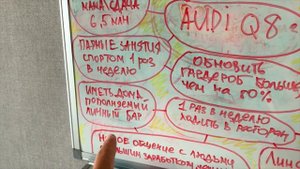 6,5 МЛН
AUDI Q8
ПАРНЫЕ ЗАНЯТИЯ
СПОРТОМ 1 РАЗ
В НЕДЕЛЮ
ОБНОВИТЬ
ГАРДЕРОБ БОЛЬШЕ
ЧЕМ НА 80%
ИМЕТЬ ДОМА
ПОПОЛНЯЕМЫЙ
ЛИЧНЫЙ БАР
1 РАЗ В НЕДЕЛЮ
ХОДИТЬ В РЕСТОРАН
ОБЩЕНИЕ С ЛЮДЬМИ
ЗАРАБОТКОМ